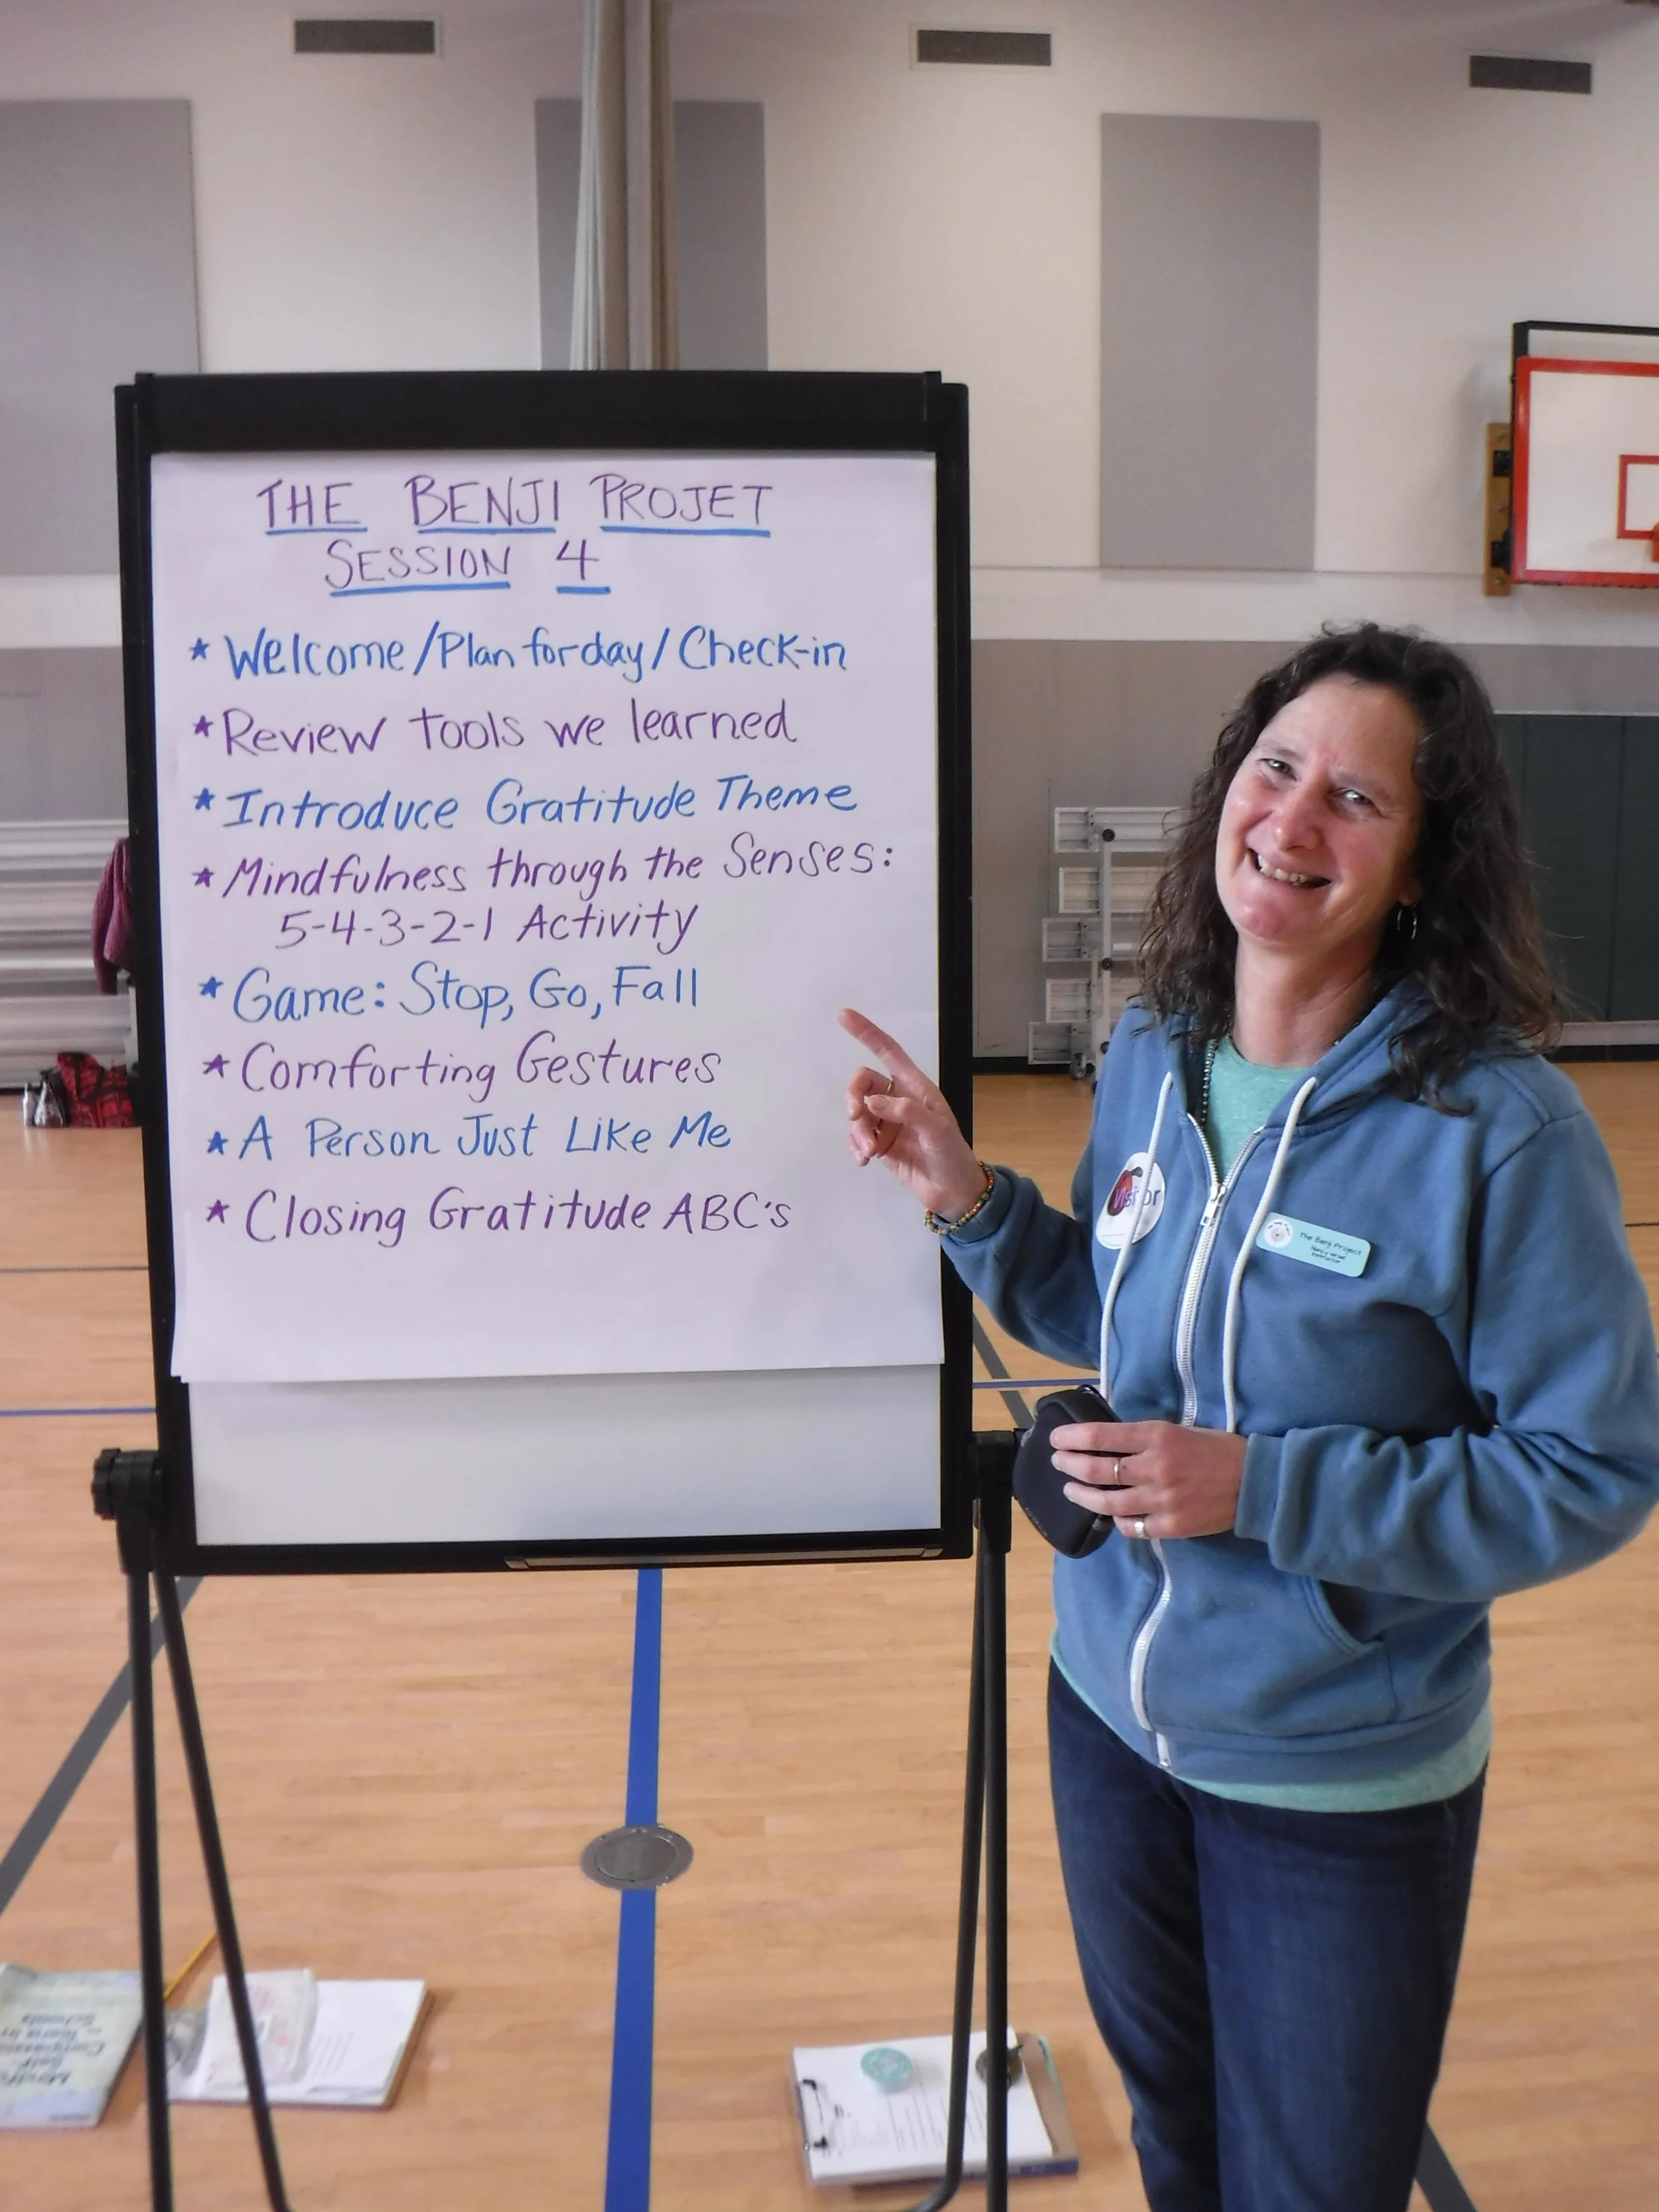 THE BENJI PROJET
SESSION 4
* Welcome/Plan for day/Check-in
* Review tools we learned
* Introduce Gratitude Theme
* Mindfulness through the Senses:
5-4-3-2-1 Activity
* Game: Stop, Go, Fall
* Comforting Gestures
* A Person Just Like Me
* Closing Gratitude ABC's
Visitor
The Benji Project